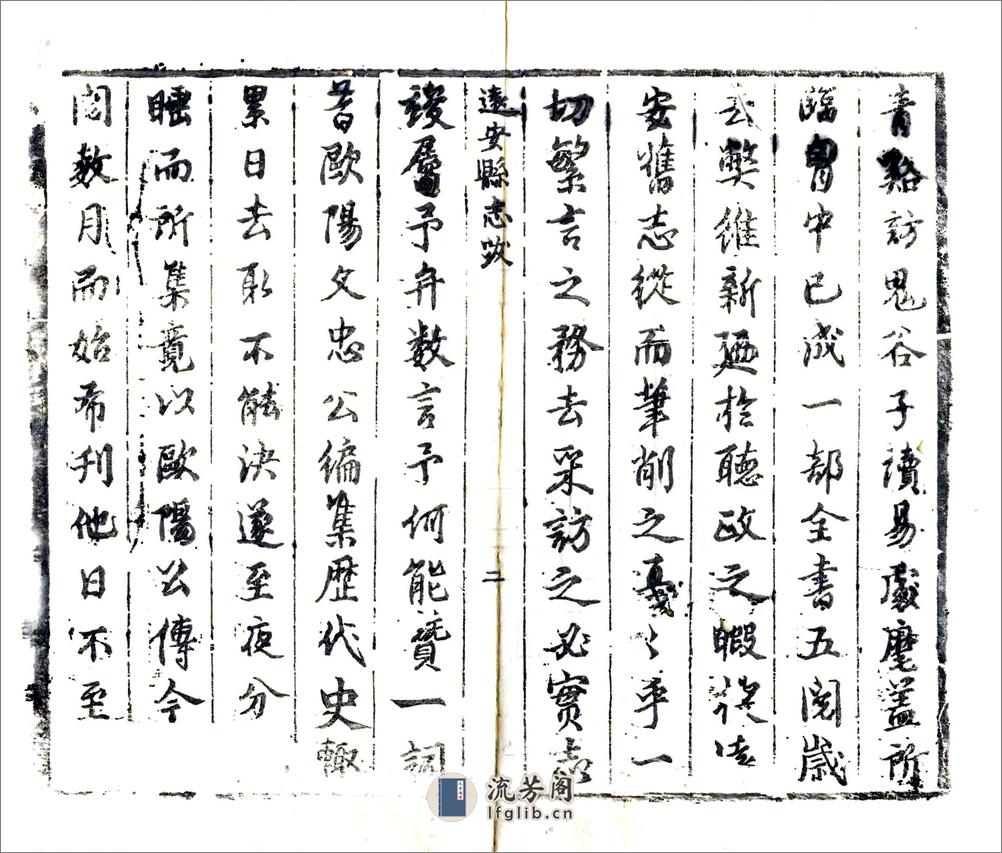 青谿訪鬼谷子讀易處麾蓋所
臨胷中已成一部全書五閱歲
弊維新廼於聽政之暇
安舊志從而筆削之戞戞乎一
切繁言之務去采訪之必實
遠安縣志跋
二
竣屬予弁数言予何能贊一詞
昔歐陽文忠公編集歷代史輙
累日去取不能決遂至夜分
而所集竟以歐陽公傳今
閱数月而始希刊他日不至
流芳阁
lfglib.cn